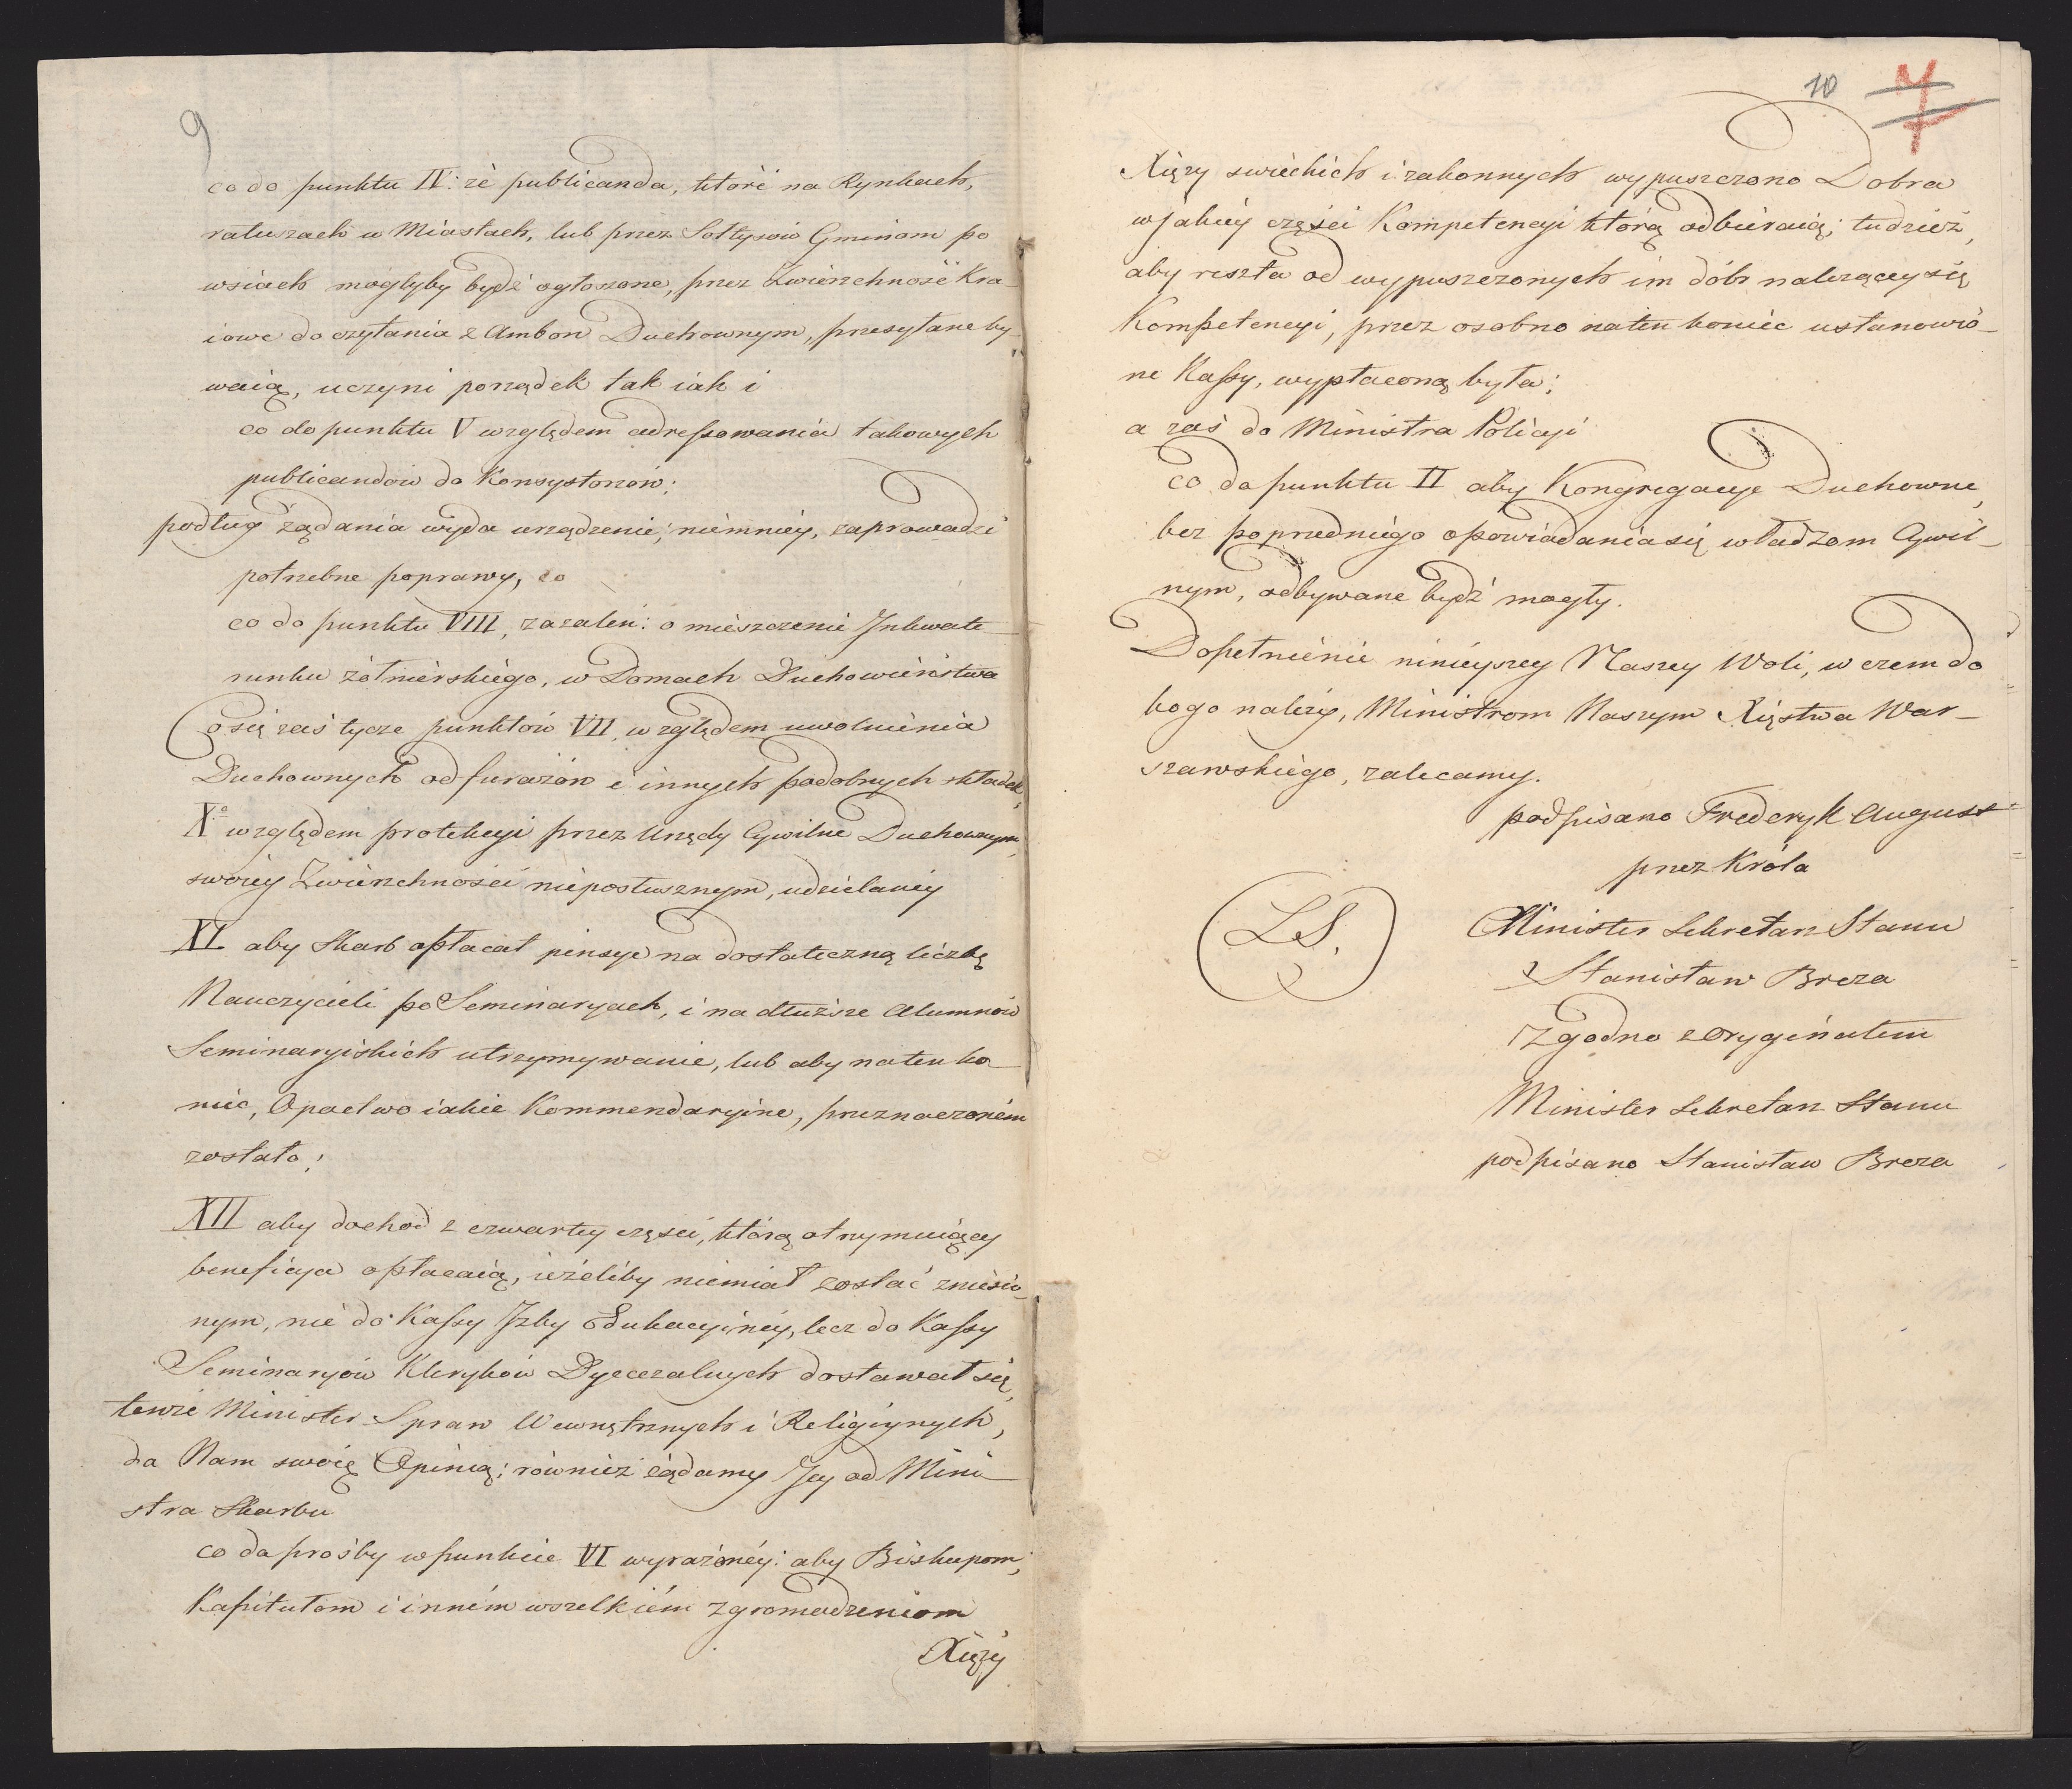 9
co do punktu IV: że publicanda, które na Rynkach,
ratuszach w Miastach, lub przez Sołtysów Gminom po
wsiach mogłyby bydź ogłoszone, przez Zwierzchność Kra-
iowe do czytania z Ambon Duchownym, przesyłane by-
waią, uczyni porządek tak iak i
co do punktu V względem adressowania takowych
publicandów do Konsystorzów;
podług żądania wyda urządzenie; niemniey, zaprowadzi
potrzebne poprawy, co
co do punktu VIII, zażaleń: o mieszczenie Inkwate-
runku żołnierskiego, w Domach Duchowieństwa
Co się zaś tycze punktów VII, względem uwolnienia
Duchownych od furażów i innych podobnych składek,
X° względem protekcyi przez Urzędy Cywilne Duchownym,
swoiey Zwierzchności nieposłusznym, udzielaney
XI. aby Skarb opłacał pensye na dostateczną liczbę
Nauczycieli po Seminaryach, i na dłuższe Alumnów
Seminaryiskich utrzymywanie, lub aby na ten ko-
niec, Opactwo iakie Kommendaryine, przeznaczoném
zostało;
XII aby dochod z czwartey części, którą otrzymuiący
beneficya opłacaią, ieżeliby niemiał zostać zniesio-
nym, nie do Kassy Izby Edukacyiney, lecz do Kassy
Seminaryów Kleryków Dyecezalnych dostawał się,
tenże Minister Spraw Wewnętrznych i Religiynych,
da Nam swoię Opinią; również żądamy Jey od Mini-
stra Skarbu
co do prośby w punkcie VI wyrażoney: aby Biskupom,
Kapitułom i inném wszelkiém zgromadzeniom
Xięży
10
7
Xięży swieckich i zakonnych wypuszczono Dobra
w jakiey części Kompetencyi którą odbieraią; tudzież,
aby reszta od wypuszczonych im dóbr należącey się
Kompetencyi, przez osobno na ten koniec ustanowio-
ne Kassy, wypłaconą była;
a zaś do Ministra Policyi
co do punktu II aby Kongregacye Duchowne,
bez poprzedniego opowiadania się władzom Cywil-
nym, odbywane bydź mogły.
Dopełnienie ninieyszey Naszey Woli, w czem do
kogo należy, Ministrom Naszym Xięstwa War-
szawskiego, zalecamy.
podpisano Frederyk August
przez Króla
L.S.
Minister Sekretarz Stanu
Stanisław Breza
Zgodno z oryginałem
Minister Sekretarz Stanu
podpisano Stanisław Breza